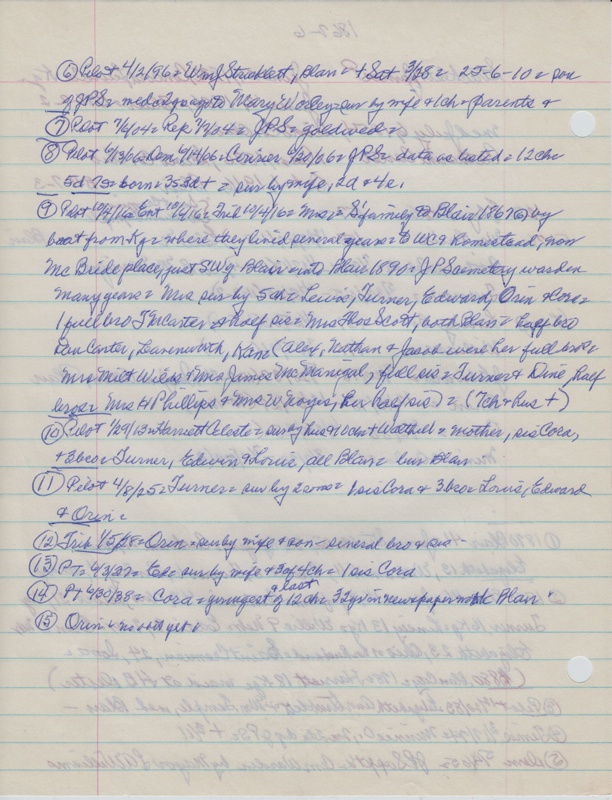 ⑥ Pilot 4/2/96 = Wm J Stricklett, Blair = + Sat 3/28 = 25-6-10 = son
of JPS = med 2 yrs ago to Mary Worley = sur by wife & 1 ch = parents +
⑦ Pilot 7/6/04 = Rep 7/7/04 = JPS = gold wed =
⑧ Pilot 6/13/06 = Dem 6/14/06 = Courier 6/20/06 = JPS = data as listed = 12 ch =
5d 7s = born = 3s 3d + = sur by wife, 2d & 4s.
⑨ Pilot 10/4/16 = Ent 10/6/16 = Trib 10/4/16 = Mrs = S family to Blair 1867(6) by
boat from Ky = where they lived several years = to WC & homestead, now
McBride place, just SW of Blair = into Blair 1890 = JPS cemetery warden
many years = Mrs sur by 5 ch = Lewis, Turner, Edward, Orin & Cora =
1 full bro T M Carter & half sis = Mrs Thos Scott, both Blair = half bro
Dan Carter, Leavenworth, Kans (Alex, Nathan & Jacob were her full bros =
Mrs Milt Wilds & Mrs James McManigal, full sis = Turner & Dine, half
bros = Mrs H Phillips & Mrs W Rogers, her half sis) = (7 ch & hus +)
⑩ Pilot 1/29/13 = Harriett Celeste = sur by hus & ch + = mother, sis Cora,
+ 3 bros = Turner, Edwin & Louis, all Blair = bur Blair
⑪ Pilot 4/8/25 = Turner = sur by 2 sons = 1 sis Cora & 3 bros = Louis, Edward
& Orin =
⑫ Trib 1/5/28 = Orin = sur by wife & son = several bro & sis
⑬ PT = 4/3/37 = Ed = sur by wife & 3 of 4 ch = 1 sis Cora
⑭ Pt 6/30/38 = Cora = youngest & last of 12 ch = 32 yrs in newspaper work Blair
⑮ Orin = no obit yet =